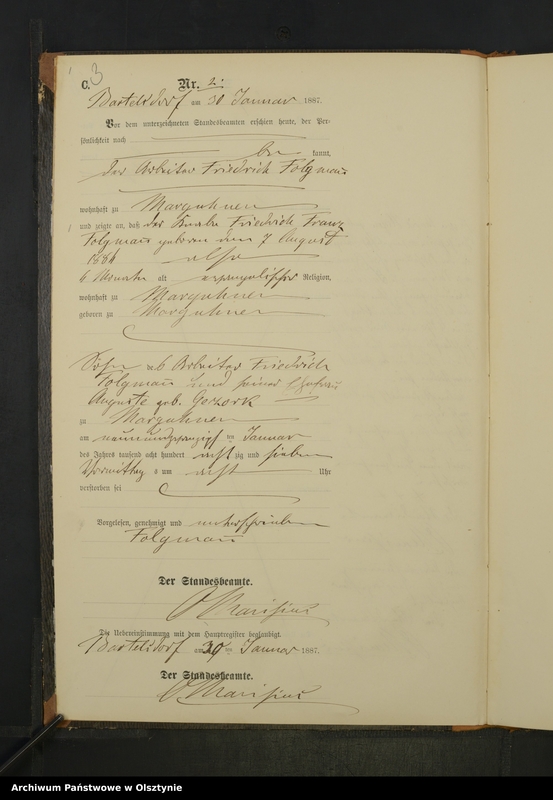 C. 3
Nr. 2.
Bartelsdorf am 30 Januar 1887.
Vor dem unterzeichneten Standesbeamten erschien heute, der Per-
sönlichkeit nach
be kannt,
der Arbeiter Friedrich Folgmann
wohnhaft zu Marguhnen
und zeigte an, daß der Knabe Friedrich Franz
Folgmann geboren den 7 August
1886 also
6 Monate alt evangelischer Religion,
wohnhaft zu Marguhnen
geboren zu Marguhnen
Sohn des Arbeiter Friedrich
Folgmann und seiner Ehefrau
Auguste geb. Gezork
zu Marguhnen
am neunundzwanzigsten Januar
des Jahres tausend acht hundert acht zig und sieben
Vormittag s um acht Uhr
verstorben sei
Vorgelesen, genehmigt und unterschrieben
Folgmann
Der Standesbeamte.
Die Uebereinstimmung mit dem Hauptregister beglaubigt.
Bartelsdorf am 30 ten Januar 1887.
Der Standesbeamte.
Archiwum Państwowe w Olsztynie